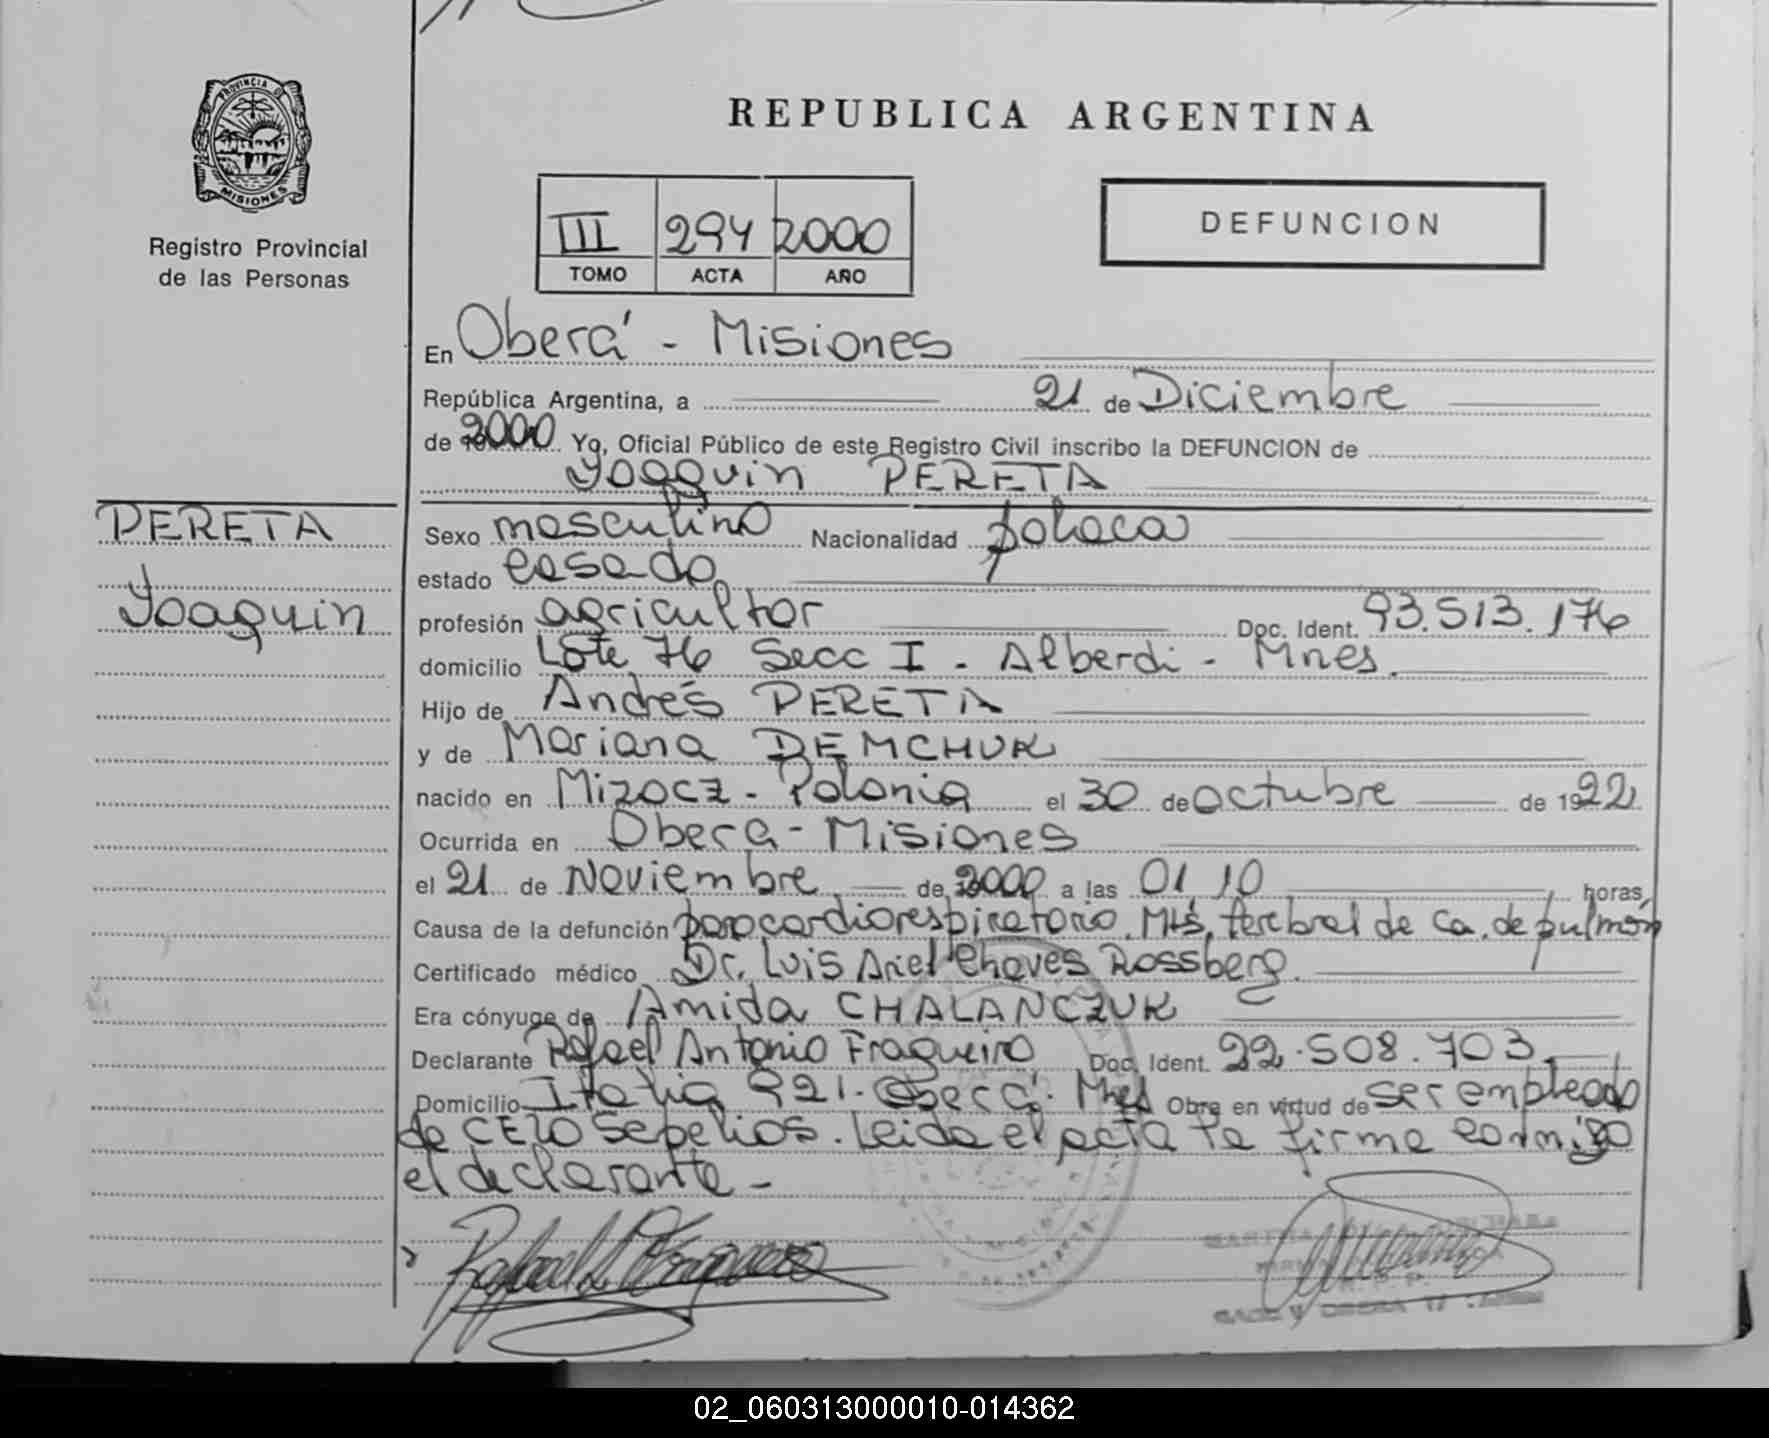 PROVINCIA DE
MISIONES
Registro Provincial
de las Personas
REPUBLICA ARGENTINA
III 294 2000
TOMO ACTA AÑO
DEFUNCION
En Oberá - Misiones
República Argentina, a 21 de Diciembre
de 2000 Yo, Oficial Público de este Registro Civil inscribo la DEFUNCION de
Joaquin PERETA
PERETA
Joaquin
Sexo masculino Nacionalidad polaca
estado casado
profesión agricultor Doc. Ident. 93.513.176
domicilio Lote 76 Secc I - Alberdi - Mnes.
Hijo de Andrés PERETA
y de Mariana DEMCHUK
nacido en Mizocz - Polonia el 30 de octubre de 1922
Ocurrida en Obera - Misiones
el 21 de Noviembre de 2000 a las 01 10 horas,
Causa de la defunción paro cardiorespiratorio. Mts. cerebral de Ca. de pulmón
Certificado médico Dr. Luis Ariel Chaves Rossberg.
Era cónyuge de Amida CHALANCZUK
Declarante Rafael Antonio Fragueiro Doc. Ident. 22.508.703
Domicilio Italia 921. Oberá. Mnes Obra en virtud de ser empleado
de CELO Sepelios. Leida el acta la firma conmigo
el declarante -
02_060313000010-014362